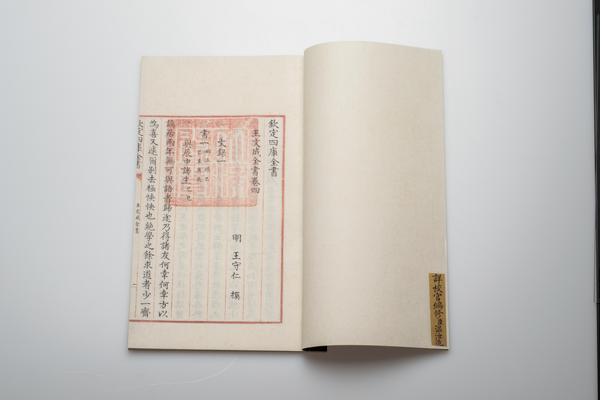 詳校官編修臣温汝适
欽定四庫全書
王文成全書卷四
明 王守仁 撰
文録一
書一 始正德己巳至庚辰
與辰中諸生 己巳
謫居兩年無可與語者歸途乃得諸友何幸何幸方以
為喜又遽爾别去極怏怏也絶學之餘求道者少一齊
欽定四庫全書
王文成全書